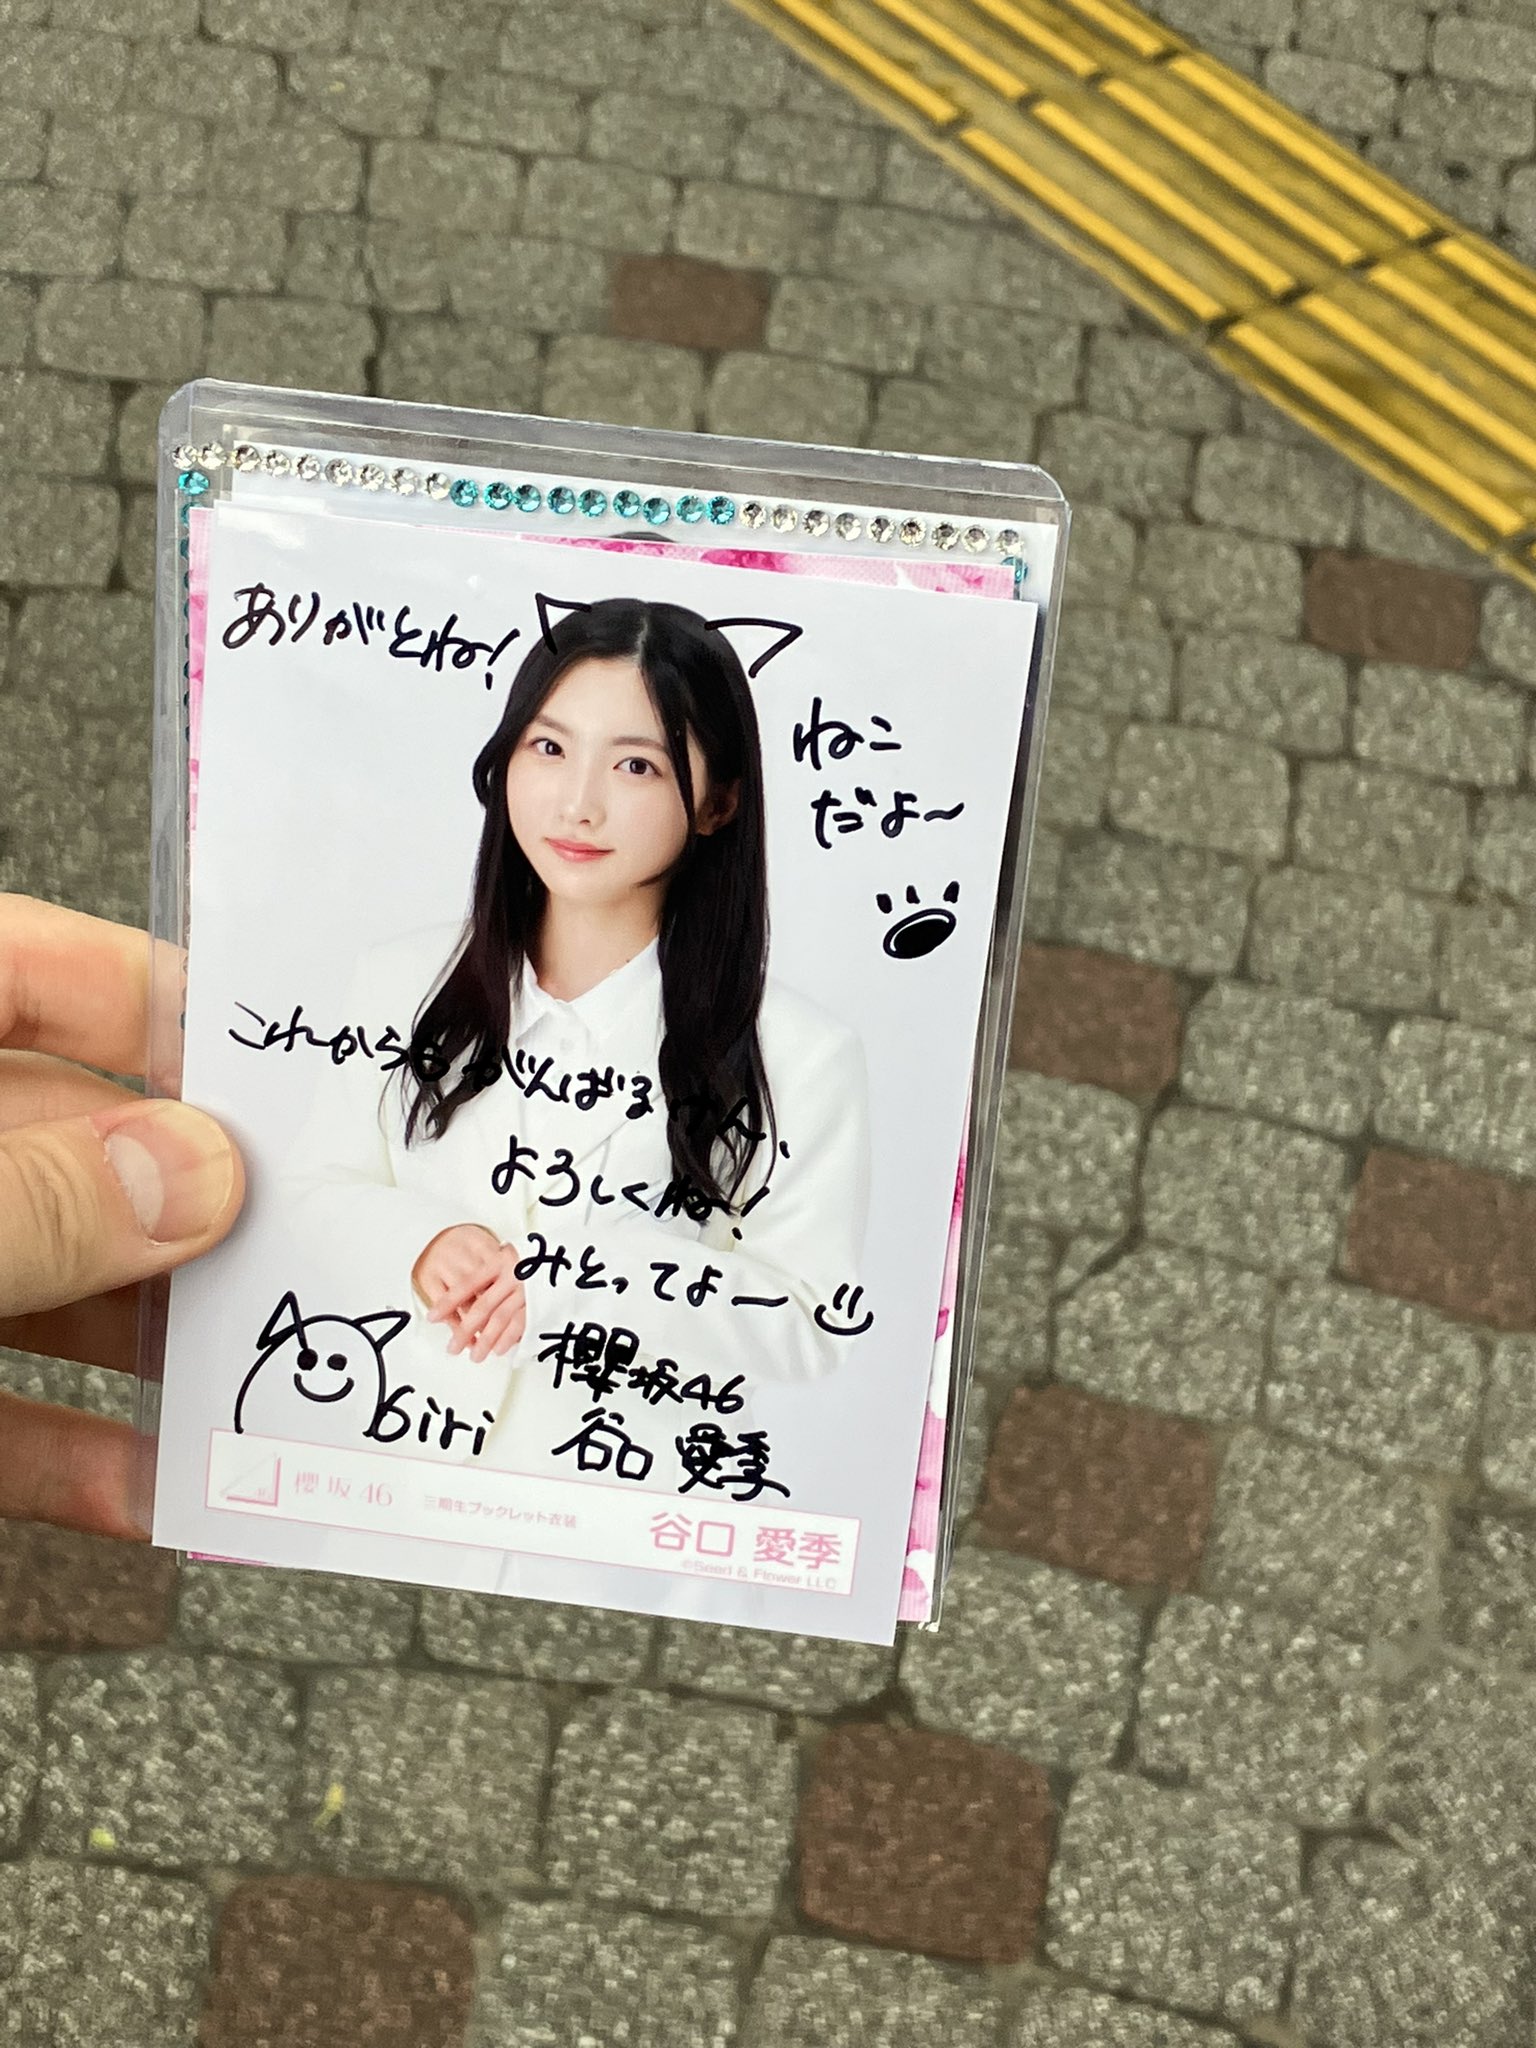 ありがとね!
ねこ
だよ〜
これからもがんばるけん、
よろしくね!
みとってよー
櫻坂46
谷口 愛季
Giri
櫻坂46 三期生ブックレット衣装 谷口 愛季
©Seed & Flower LLC